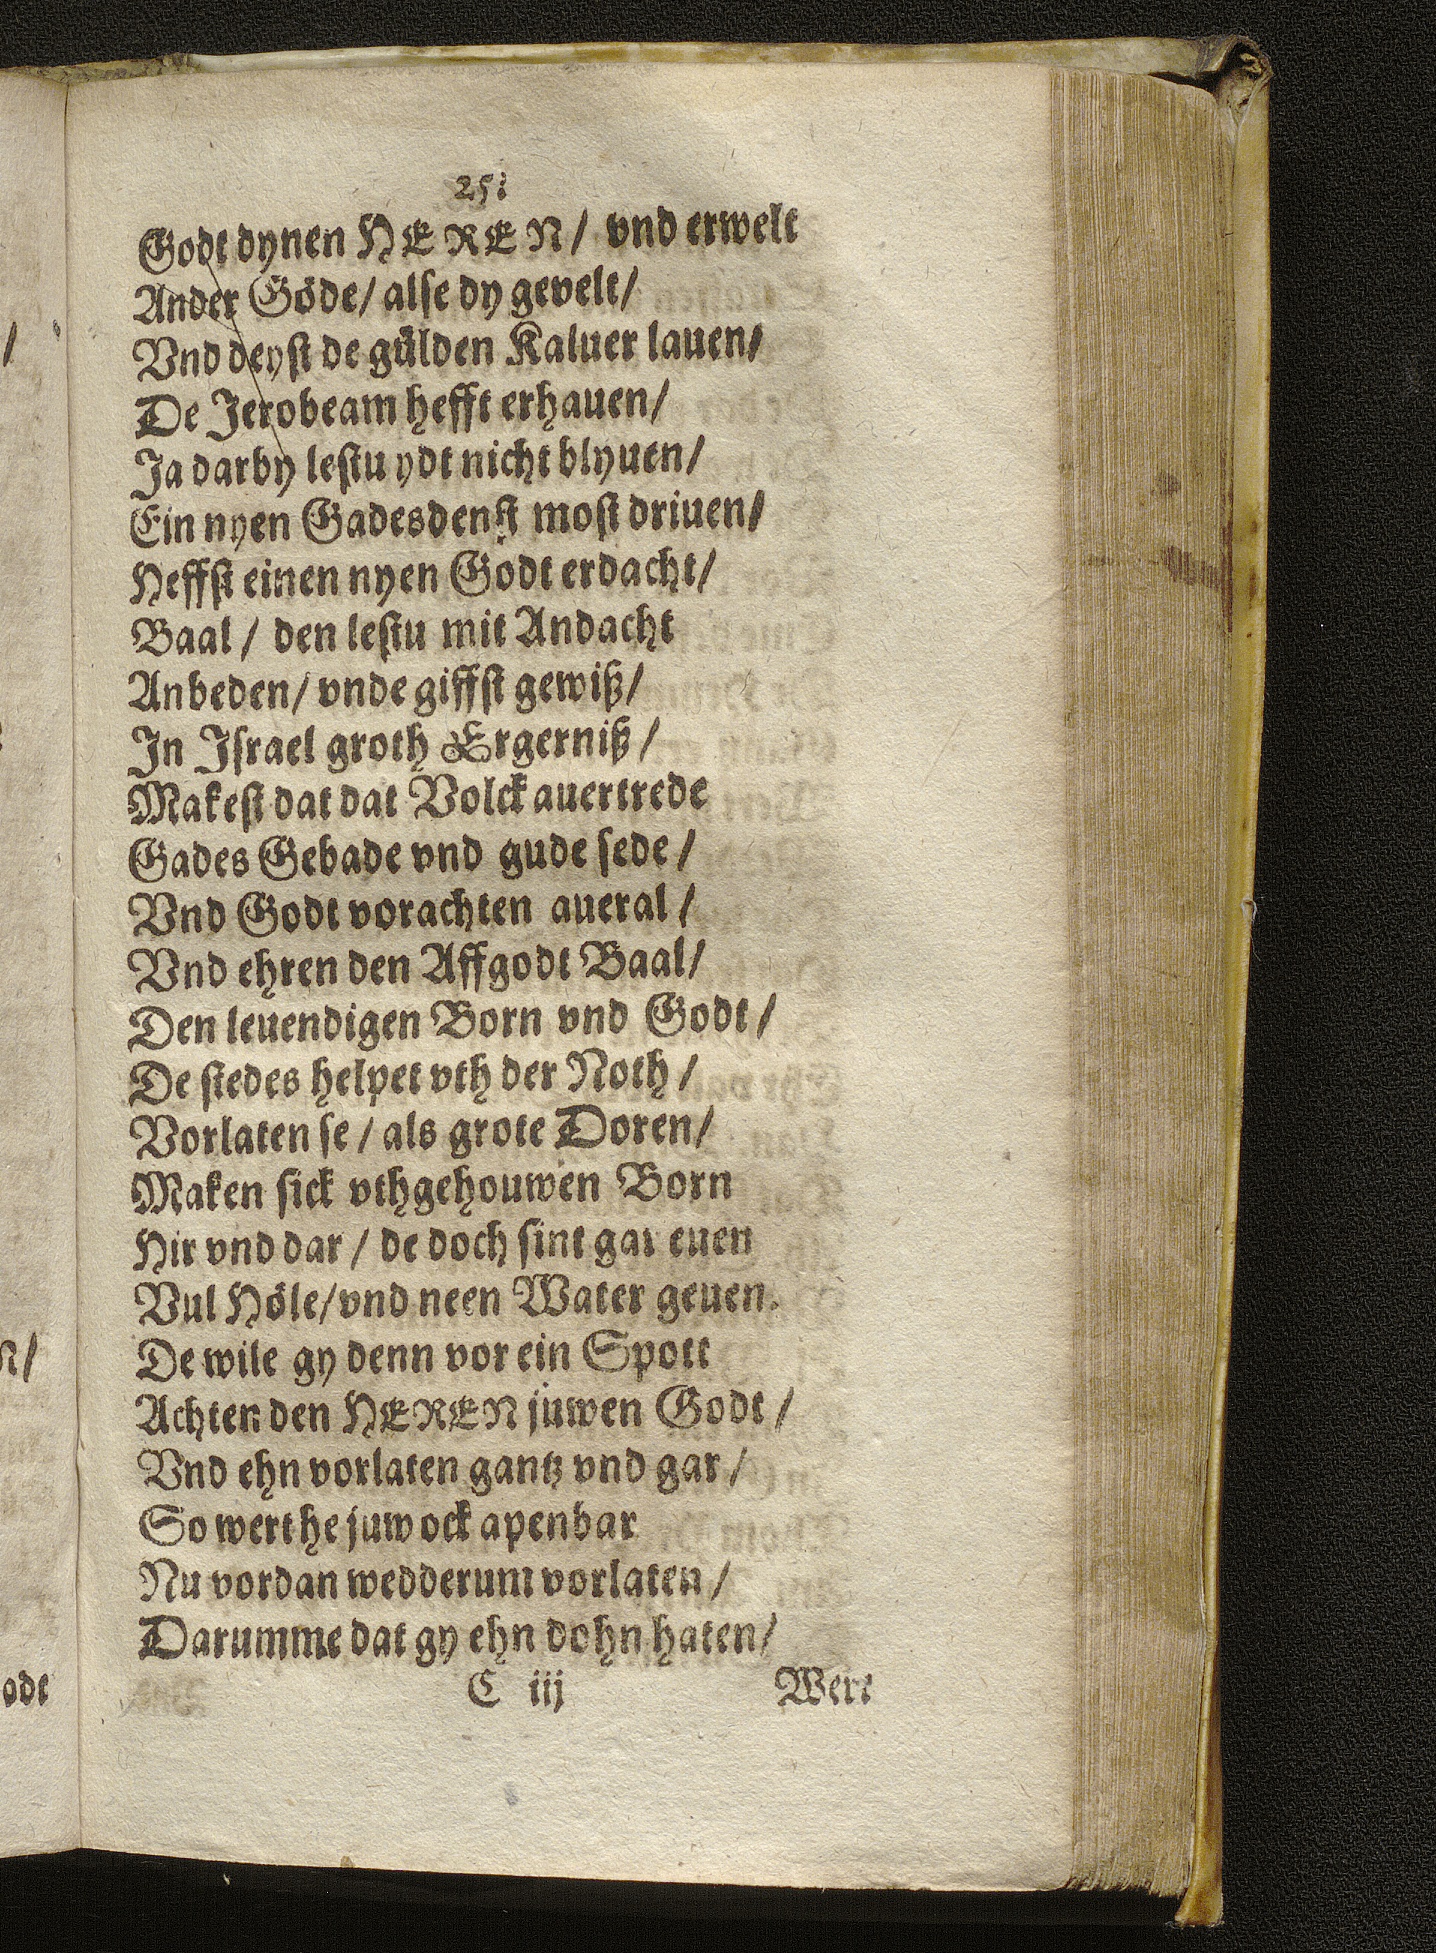 25.
Godt dynen HEREN/ vnd erwelt
Ander Göde/ alse dy gevelt/
Vnd deyst de gülden Kaluer lauen/
De Jerobeam hefft erhauen/
Ja darby lestu ydt nicht blyuen/
Ein nyen Gadesdenst most driuen/
Heffst einen nyen Godt erdacht/
Baal/ den lestu mit Andacht
Anbeden/ vnde giffst gewiß/
In Israel groth Ergerniß/
Makest dat dat Volck auertrede
Gades Gebade vnd gude sede/
Vnd Godt vorachten aueral/
Vnd ehren den Affgodt Baal/
Den leuendigen Born vnd Godt/
De stedes helpet vth der Noth/
Vorlaten se/ als grote Doren/
Maken sick vthgehouwen Born
Hir vnd dar/ de doch sint gar euen
Vul Höle/ vnd neen Water geuen.
De wile gy denn vor ein Spott
Achten den HEREN juwen Godt/
Vnd ehn vorlaten gantz vnd gar/
So wert he juw ock apenbar
Nu vordan wedderum vorlaten/
Darumme dat gy ehn dohn haten/
C iij Wert